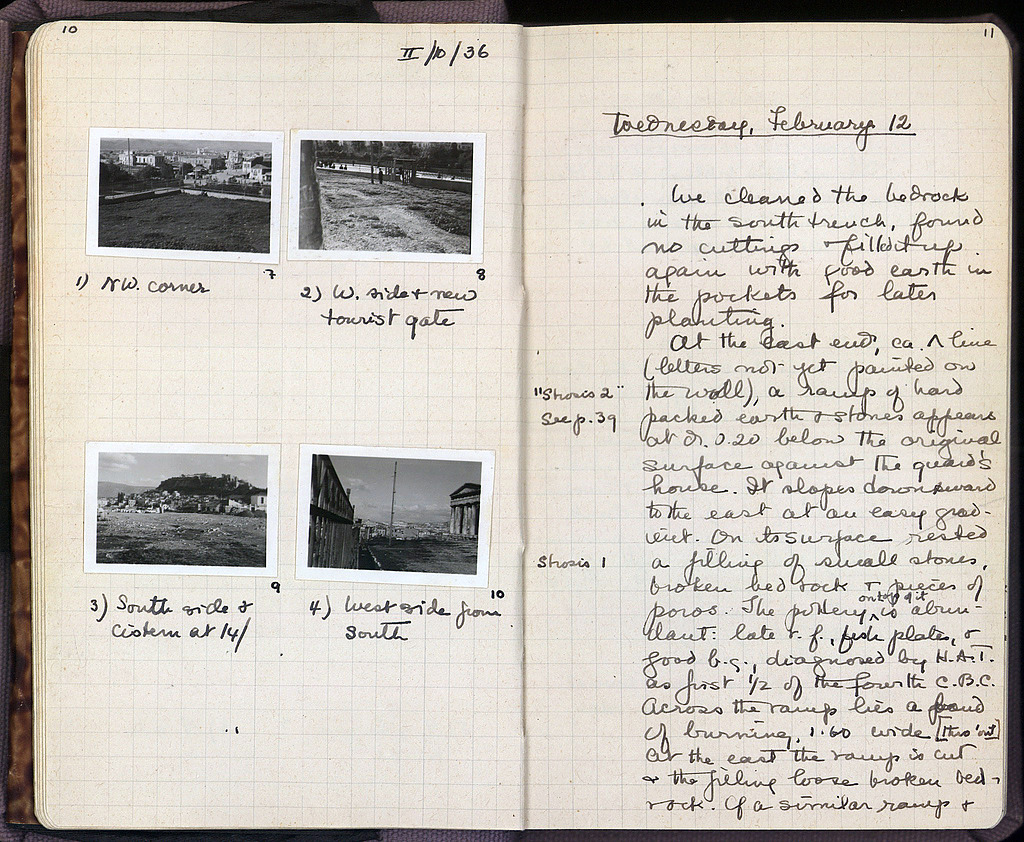 10
II/10/36
7
1) NW. corner
8
2) W. side & new
tourist gate
9
3) South side &
cistern at 14/
10
4) West side from
South
11
Wednesday, February 12
We cleaned the bedrock
in the south trench, found
no cuttings & filled it up
again with good earth in
the pockets for later
planting.
At the east end, ca. Λ line
(letters not yet painted on
"Strosis 2"
the wall), a ramp of hard
See p. 39
packed earth & stones appears
at D. 0.20 below the original
surface against the guard's
house. It slopes downward
to the east at an easy grad-
ient. On its surface rested
Strosis 1
a filling of small stones,
broken bed rock + pieces of
poros. The pottery on top of it is abun-
dant: late r. f., fish plates, &
good b.g., diagnosed by H.A.T.
as first 1/2 of the fourth C. B.C.
Across the ramp lies a band
of burning, 1.60 wide [thro'out]
At the east the ramp is cut
& the filling loose broken bed-
rock. Of a similar ramp &